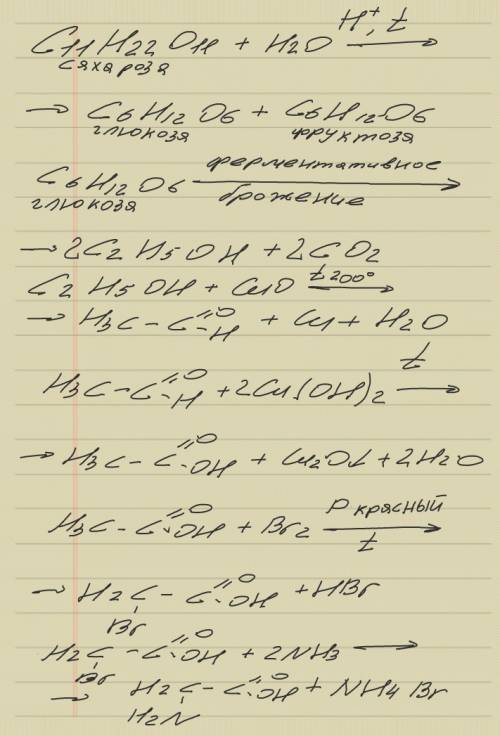 C11H22O11 + H2O H⁺, t →
сахароза
→ C6H12O6 + C6H12O6
глюкоза фруктоза
C6H12O6 ферментативное →
глюкоза брожение
→ 2C2H5OH + 2CO2
C2H5OH + CuO t 200° →
→ H3C - C =O -H + Cu + H2O
H3C - C =O -H + 2Cu(OH)2 t →
→ H3C - C =O -OH + Cu2O↓ + 2H2O
H3C - C =O -OH + Br2 P красный → t
→ H2C - C =O -OH + HBr
Br
H2C - C =O -OH + 2NH3 →
Br
→ H2C - C =O -OH + NH4Br
H2N